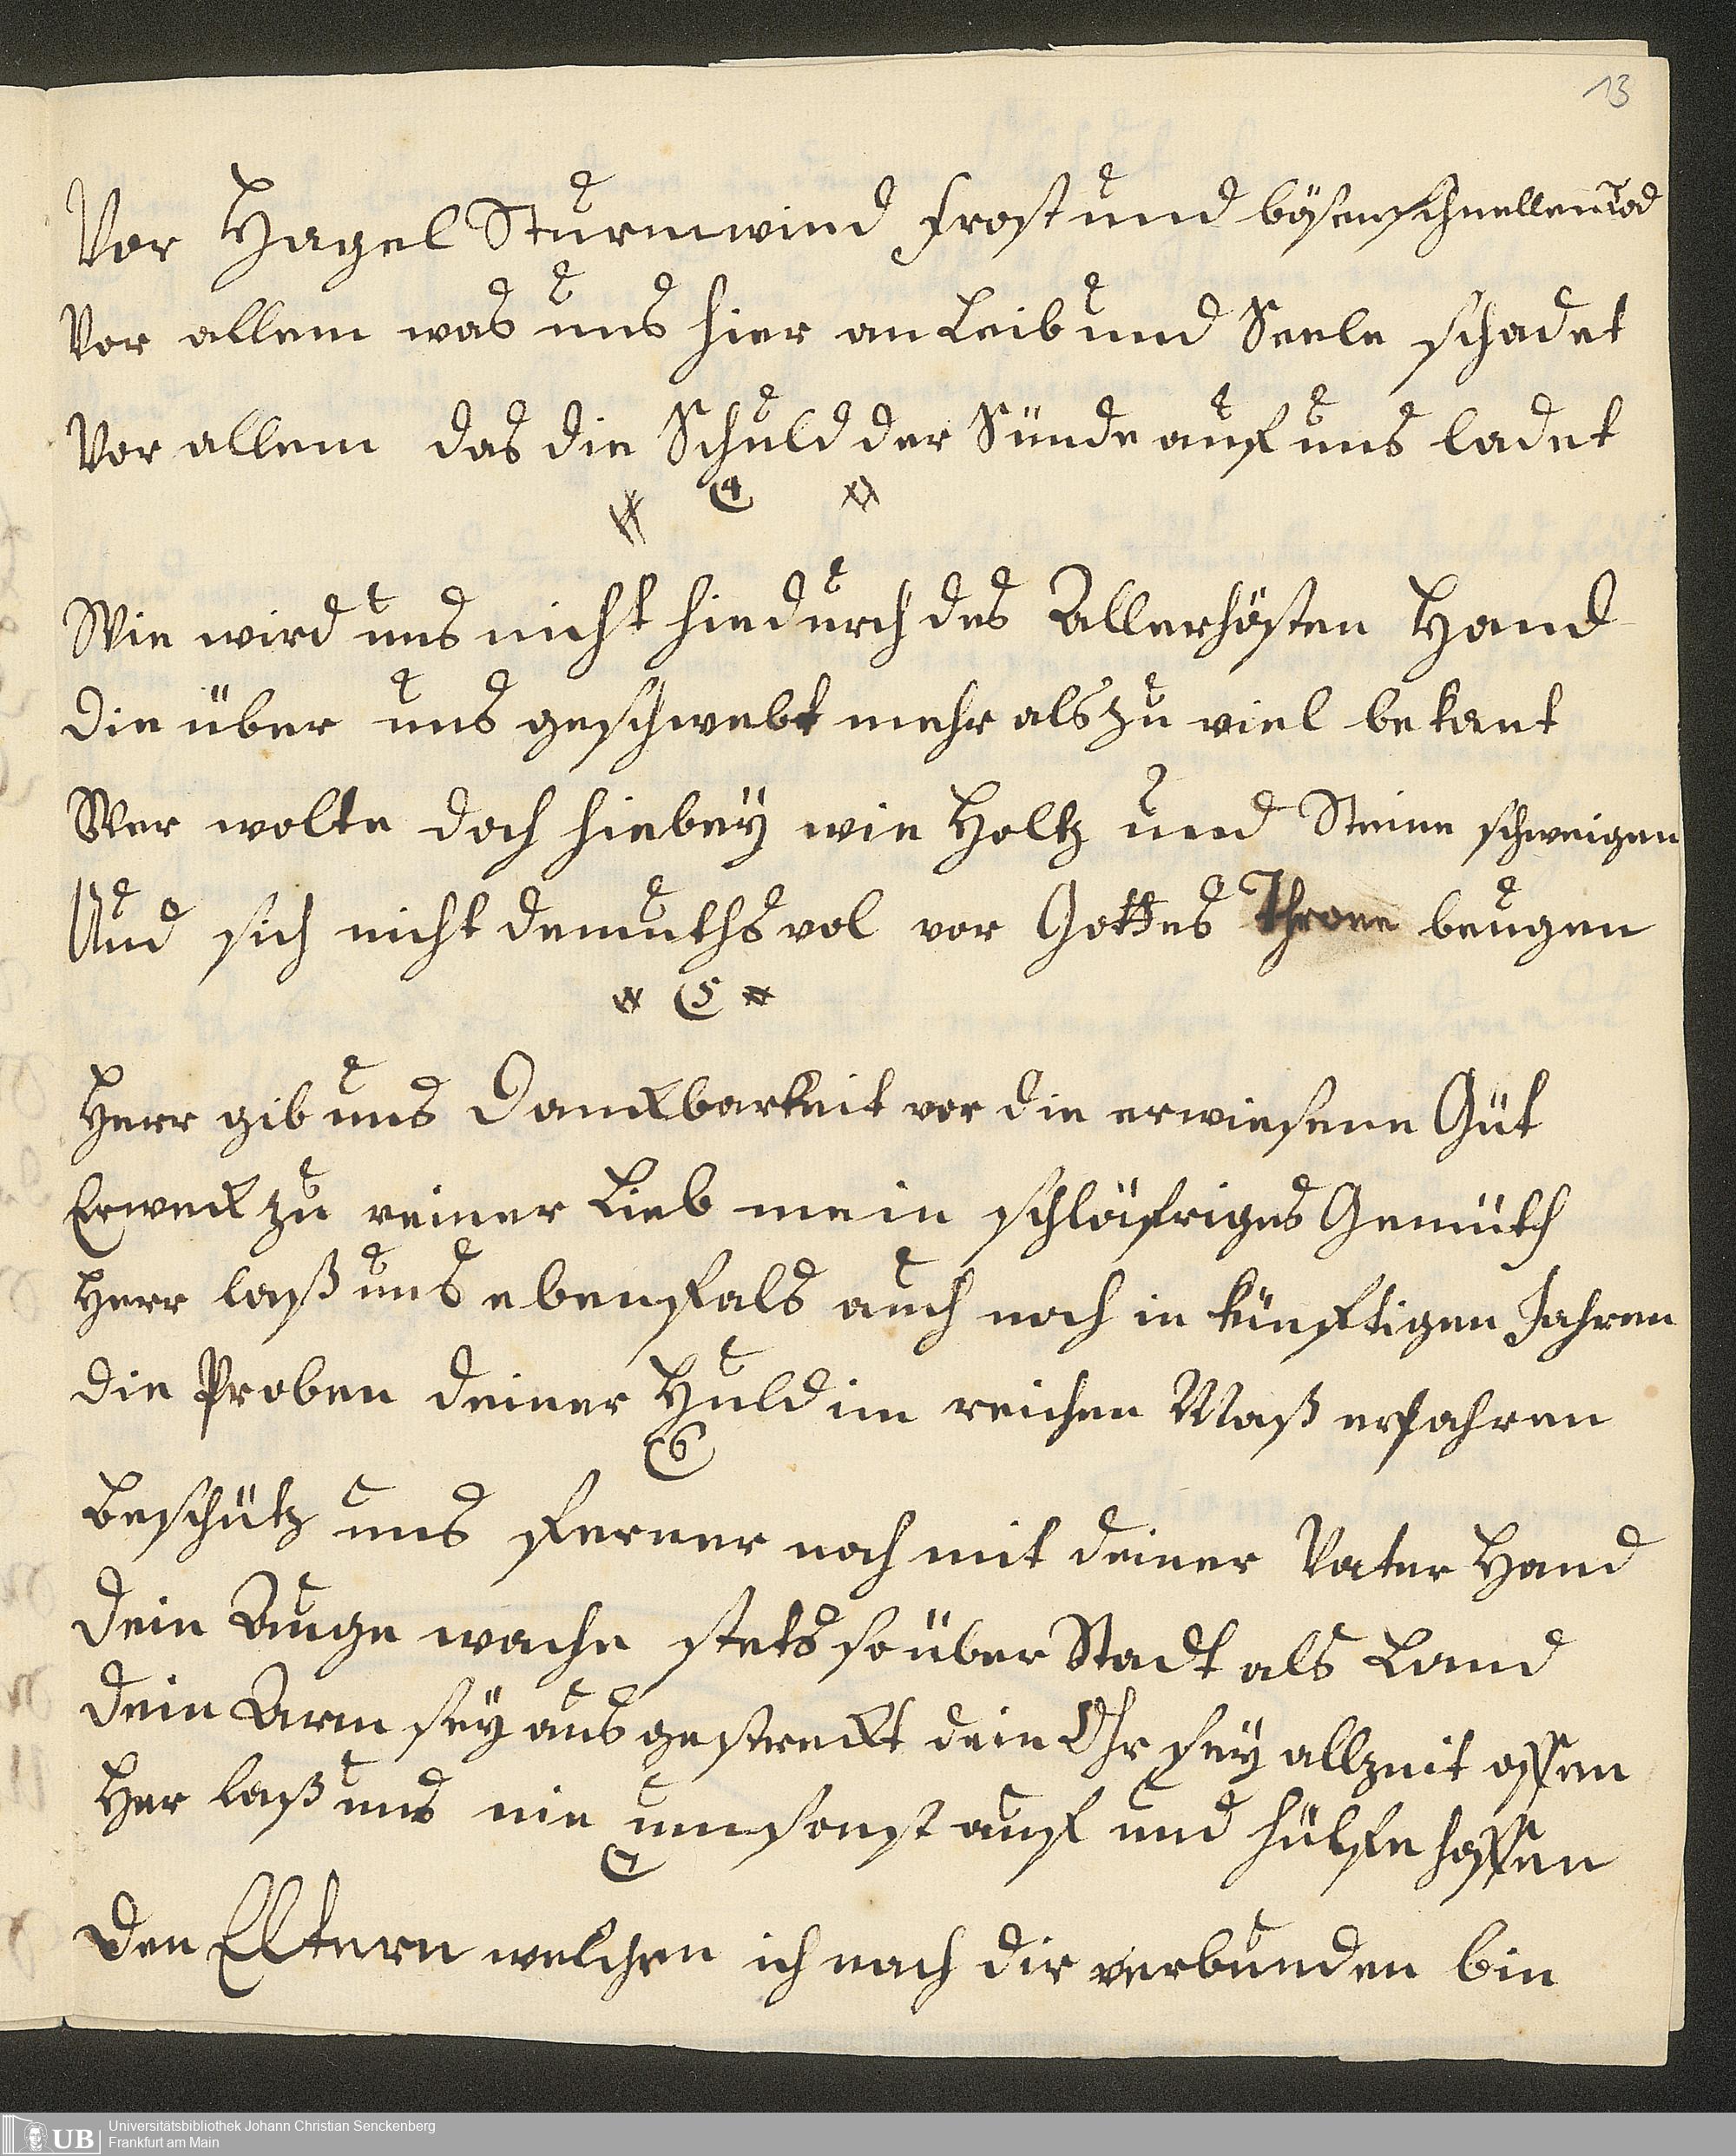 13
Vor Hagel Sturmwind Frost und bösen schnellen Tod
Vor allem was uns hier an Leib und Seele schadet
Vor allem das die Schuld der Sünde auf uns ladet
4
Wie wird uns nicht hiedurch des Allerhösten Hand
die über uns geschwebt mehr als zu viel bekant
Wer wolte doch hiebey wie Holtz und Steine schweigen
Und sich nicht demuths vol vor Gottes Throne beugen
5
Herr gib uns Danckbarkeit vor die erwiesene Güt
Erweck zu reiner Lieb mein schläfriges Gemüth
Herr laß uns ebenfals auch noch in künftigen Jahren
die Proben deiner Huld im reichen Maß erfahren
6
Beschütz uns ferner noch mit deiner Vater Hand
dein Auge wache stets so über Stadt als Land
dein Arm sey aus gestreckt dein Ohr sey allzeit offen
Her laß uns nie umsonst auf und hülfe hoffen
den Eltern welchen ich nach dir verbunden bin
UB Universitätsbibliothek Johann Christian Senckenberg
Frankfurt am Main